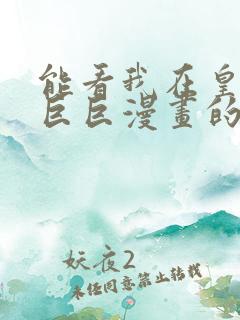 能看我在皇
巨巨漫畫的
妖夜2
未经同意禁止转载